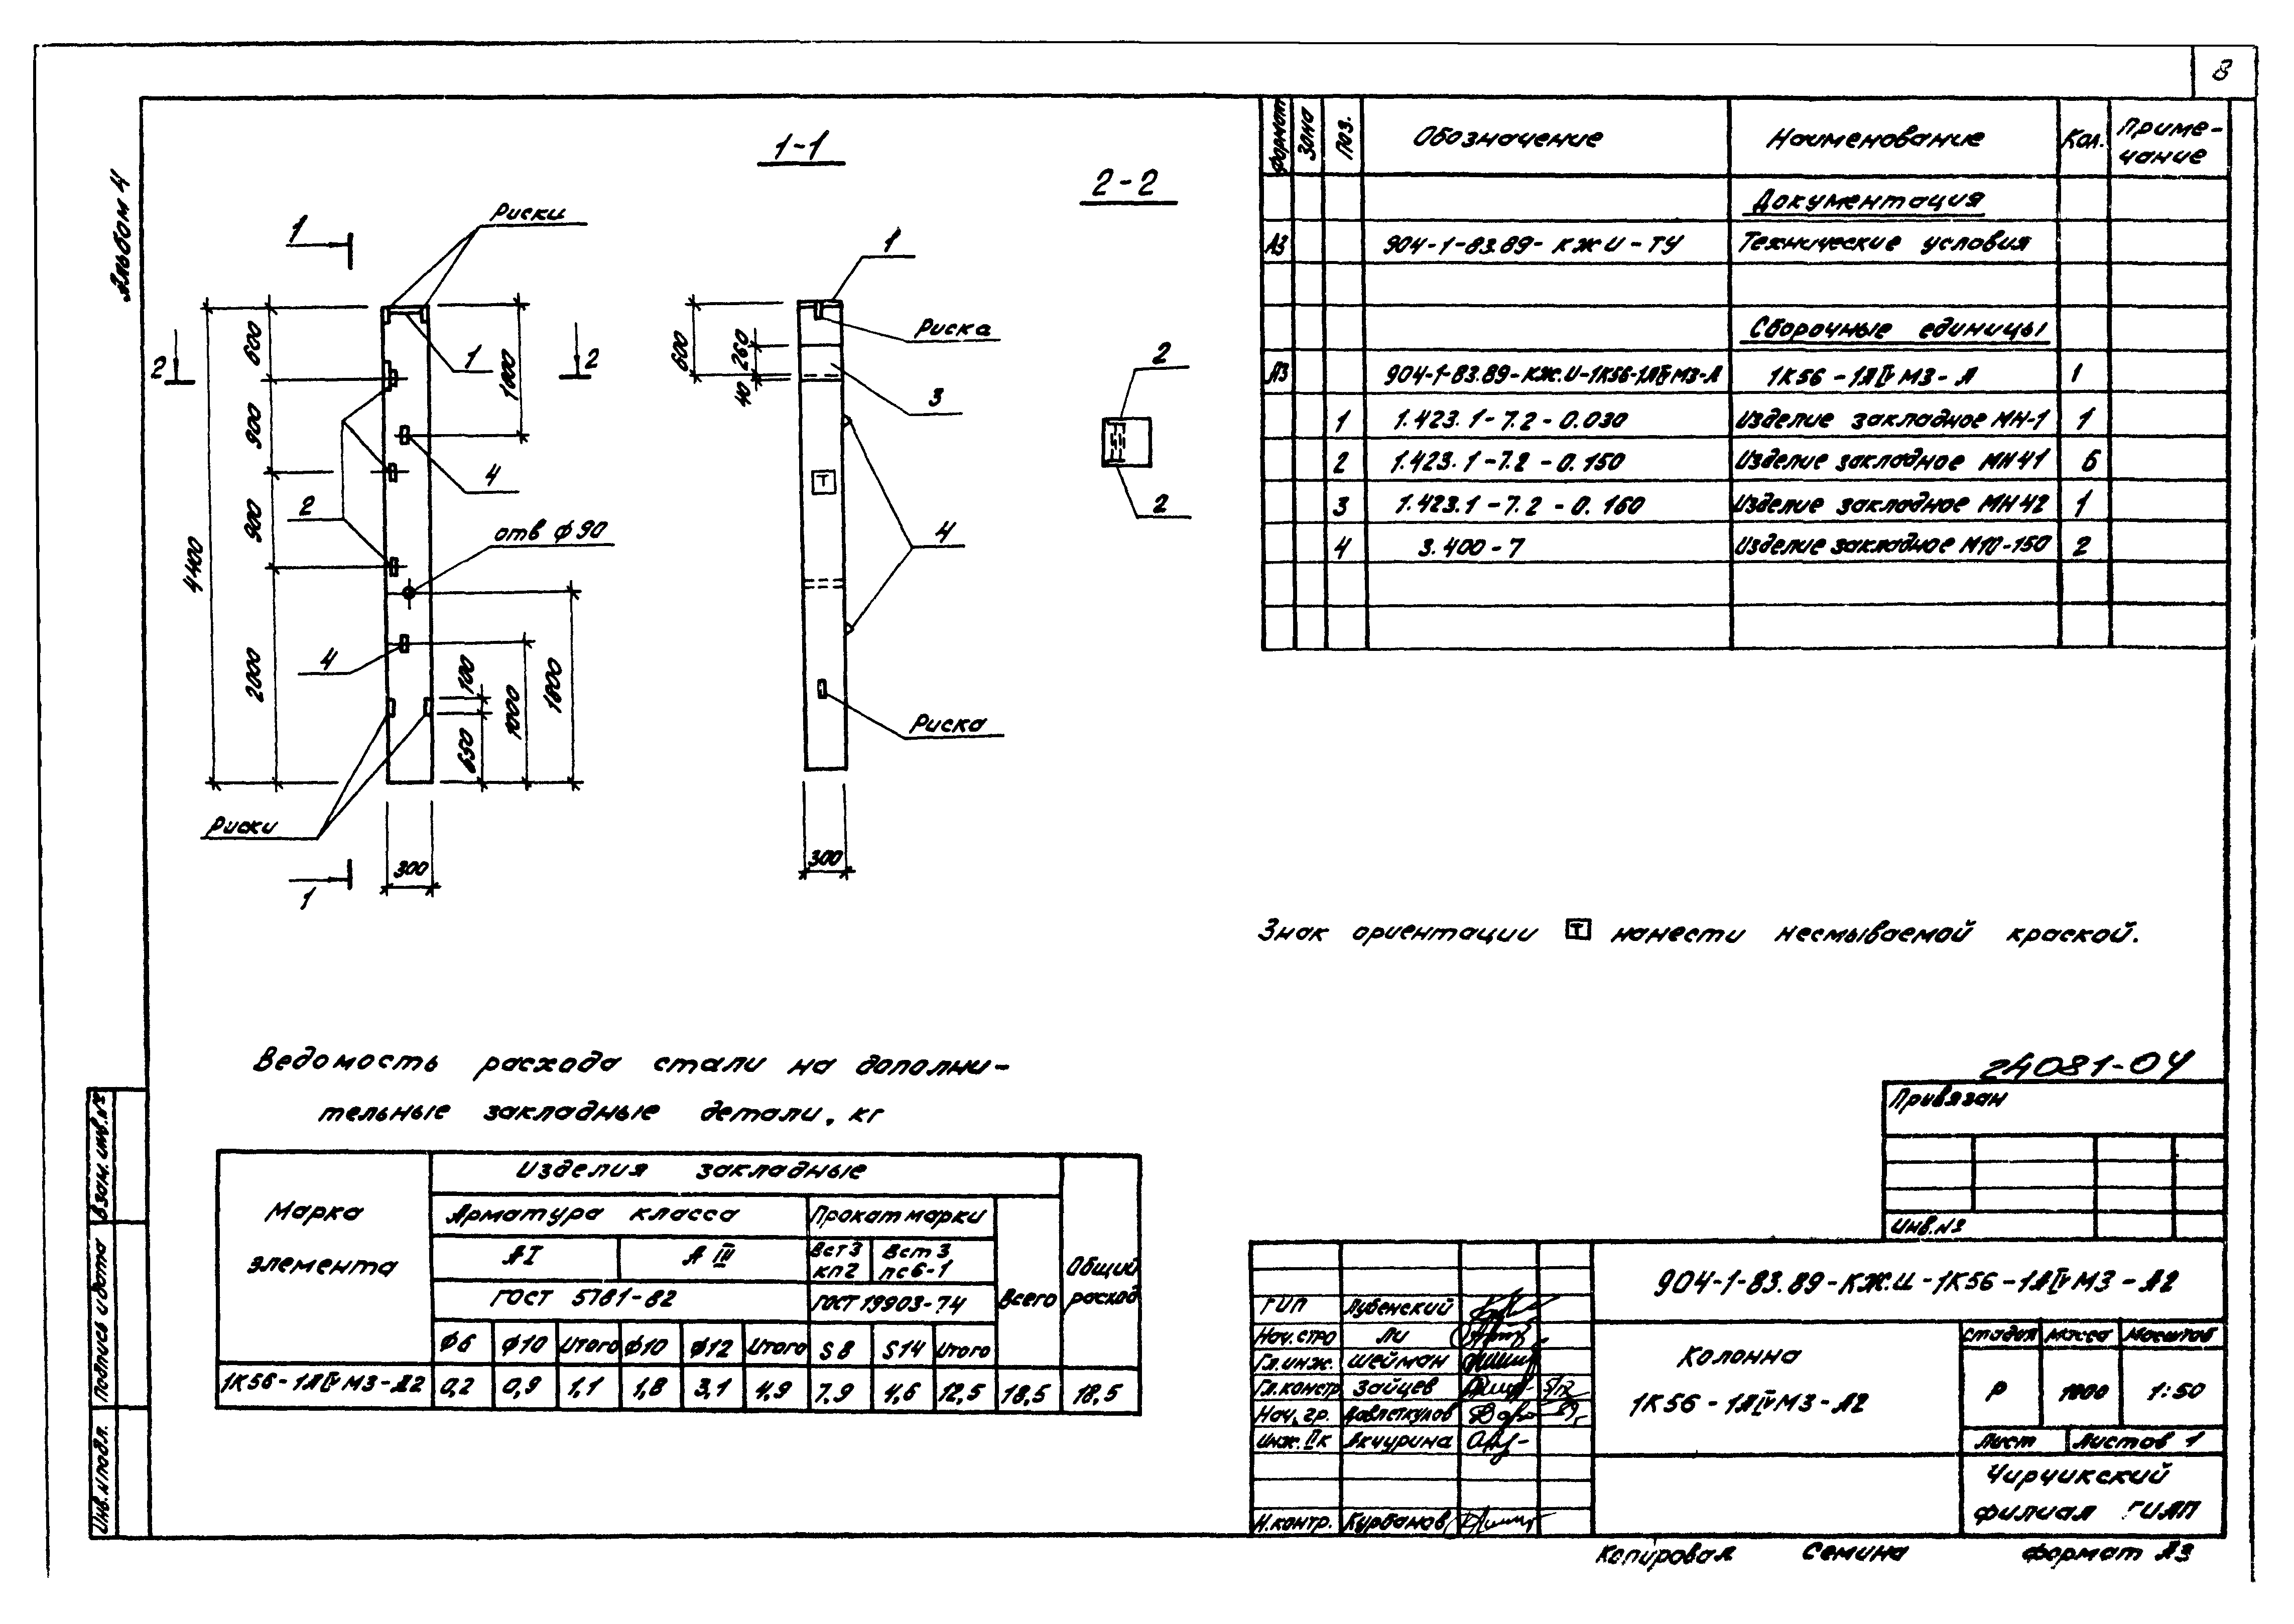 8
Альбом 4
1-1
2-2
1
Риски
2
2
1
600
900
900
2000
4400
1200
4
2
отв ф90
4
100
650
1000
1800
Риски
300
1
1
Риска
600
260
40
3
Т
4
Риска
300
2
2
Формат Зона Поз. Обозначение Наименование Кол. Приме-
чание
Документация
А3 904-1-83.89-КЖ.И-ТУ Технические условия
Сборочные единицы
А3 904-1-83.89-КЖ.И-1К56-1АIVМ3-А 1К56-1АIVМ3-А 1
1 1.423.1-7.2-0.030 Изделие закладное МН-1 1
2 1.423.1-7.2-0.150 Изделие закладное МН41 6
3 1.423.1-7.2-0.160 Изделие закладное МН42 1
4 3.400-7 Изделие закладное М10-150 2
Знак ориентации Т нанести несмываемой краской.
Ведомость расхода стали на дополни-
тельные закладные детали, кг
Марка элемента
Изделия закладные
Общий расход
Арматура класса Прокат марки Всего
АI АIII Вст3 кп2 Вст3 пс6-1
ГОСТ 5781-82 ГОСТ 19903-74
ф6 ф10 Итого ф10 ф12 Итого S8 S14 Итого
1К56-1АIVМ3-А2 0,2 0,9 1,1 1,8 3,1 4,9 7,9 4,6 12,5 18,5 18,5
24081-04
Привязан
Инв.№
904-1-83.89-КЖ.И-1К56-1АIVМ3-А2
ГИП Лубенский
Нач.стро Ли
Гл.инж. Шейман
Гл.констр Зайцев
Нач.гр. Давлеткулов
Инж.IIк Акчурина
Н.контр. Курбанов
Колонна
1К56-1АIVМ3-А2
Стадия Масса Масштаб
Р 1000 1:50
Лист Листов 1
Чирчикский
филиал ГИАП
Взам.инв.№
Подпись и дата
Инв.№подл.
Копировал Семина Формат А3